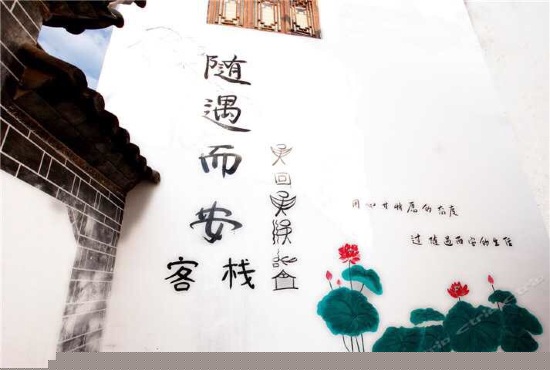 随遇而安
客栈
用心甘情愿的态度
过随遇而安的生活